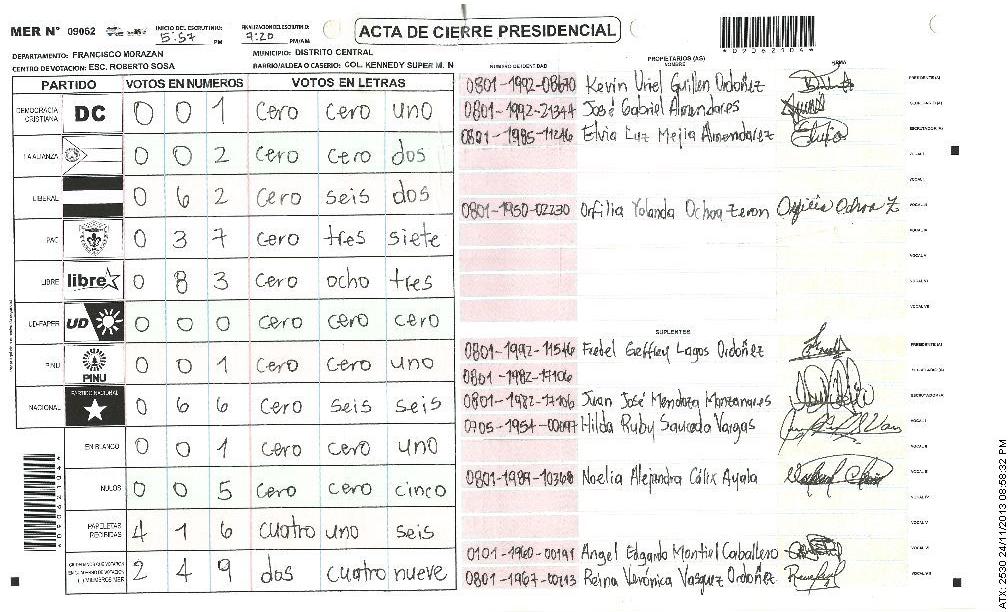 MER N° 09062 INICIO DEL ESCRUTINIO: 5:57 PM FINALIZACION ESCRUTINIO: 7:20 PM/AM ACTA DE CIERRE PRESIDENCIAL
*09062104*
DEPARTAMENTO: FRANCISCO MORAZAN MUNICIPIO: DISTRITO CENTRAL
CENTRO DE VOTACION: ESC. ROBERTO SOSA BARRIO/ALDEA O CASERIO: COL. KENNEDY SUPER M. N
PARTIDO VOTOS EN NUMEROS VOTOS EN LETRAS
DEMOCRACIA CRISTIANA DC 0 0 1 cero cero uno
LA ALIANZA 0 0 2 cero cero dos
LIBERAL 0 6 2 cero seis dos
PAC 0 3 7 cero tres siete
LIBRE libre 0 8 3 cero ocho tres
UD-FAPER UD 0 0 0 cero cero cero
PINU PINU 0 0 1 cero cero uno
NACIONAL PARTIDO NACIONAL 0 6 6 cero seis seis
EN BLANCO 0 0 1 cero cero uno
NULOS 0 0 5 cero cero cinco
PAPELETAS RECIBIDAS 4 1 6 cuatro uno seis
2 4 9 dos cuatro nueve
NUMERO DE IDENTIDAD PROPIETARIOS (AS) NOMBRE FIRMA
Kevin Uriel Guillen Ordoñez PRESIDENTE(A)
0801-1992-21344 José Gabriel Almendares SECRETARIO(A)
0801-1985-11246 Elvia Luz Mejia Almendarez ESCRUTADOR(A)
VOCAL I
VOCAL II
0801-1950-02230 Orfilia Yolanda Ochoa Zeron Orfilia Ochoa Z VOCAL III
VOCAL IV
VOCAL V
VOCAL VI
VOCAL VII
SUPLENTES
0801-1992-11546 Fredel Geffrey Lagos Ordoñez PRESIDENTE(A)
0801-1982-17106 SECRETARIO(A)
0801-1982-17106 Juan José Mendoza Manzanares ESCRUTADOR(A)
Hilda Ruby Saucedo Vargas VOCAL I
VOCAL II
Noelia Alejandra Cálix Ayala VOCAL III
VOCAL IV
VOCAL V
0101-1960-00191 Angel Edgardo Montiel Caballero VOCAL VI
Reina Verónica Vasquez Ordoñez VOCAL VII
*09062104*
ATX: 2530 24/11/2013 08:58:32 PM